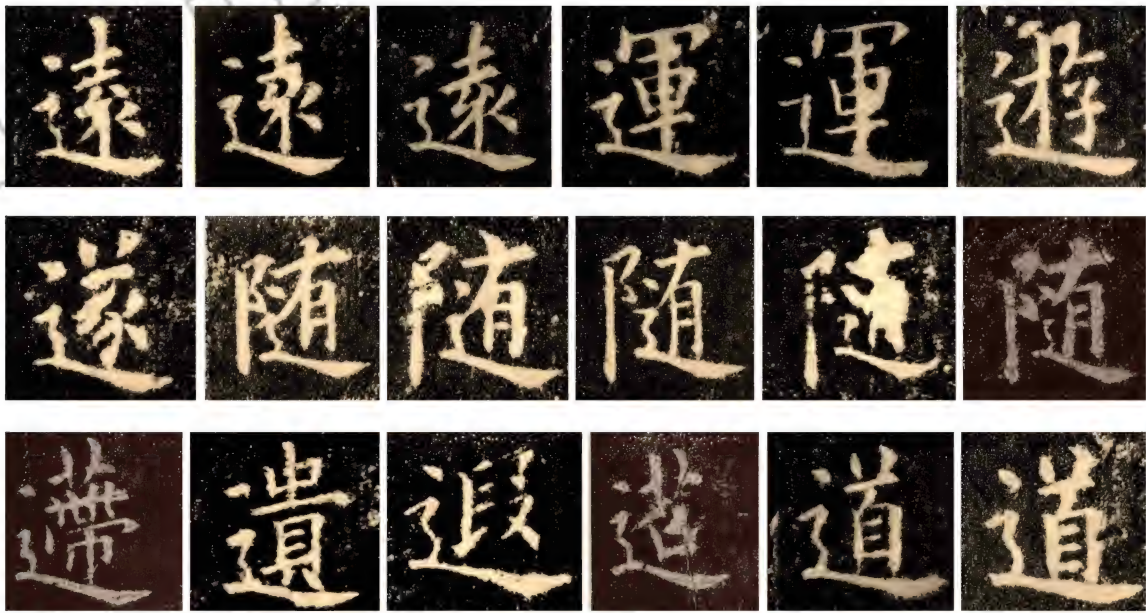 遠遠遠運運遊
遂随随随随随
遰遺遐道道